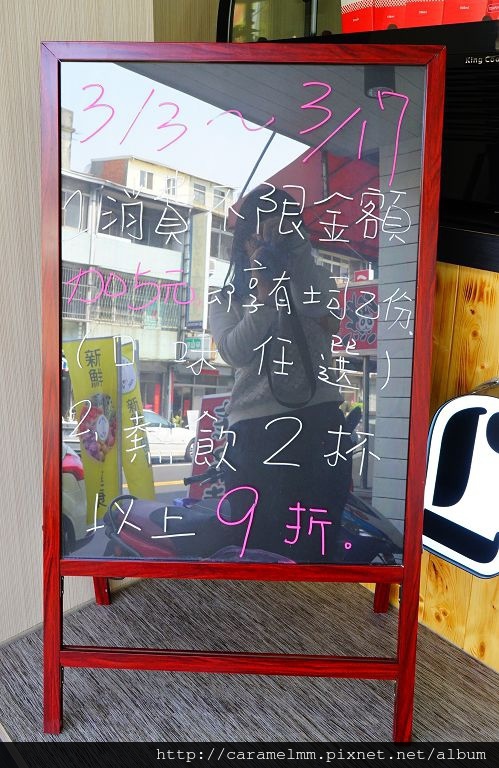 3/3~3/17
1 消費不限金額
加5元即享有土司乙份
(口味任選)
2 熱飲2杯
以上9折。
新鮮
King Coo
http://caramelmm.pixnet.net/album